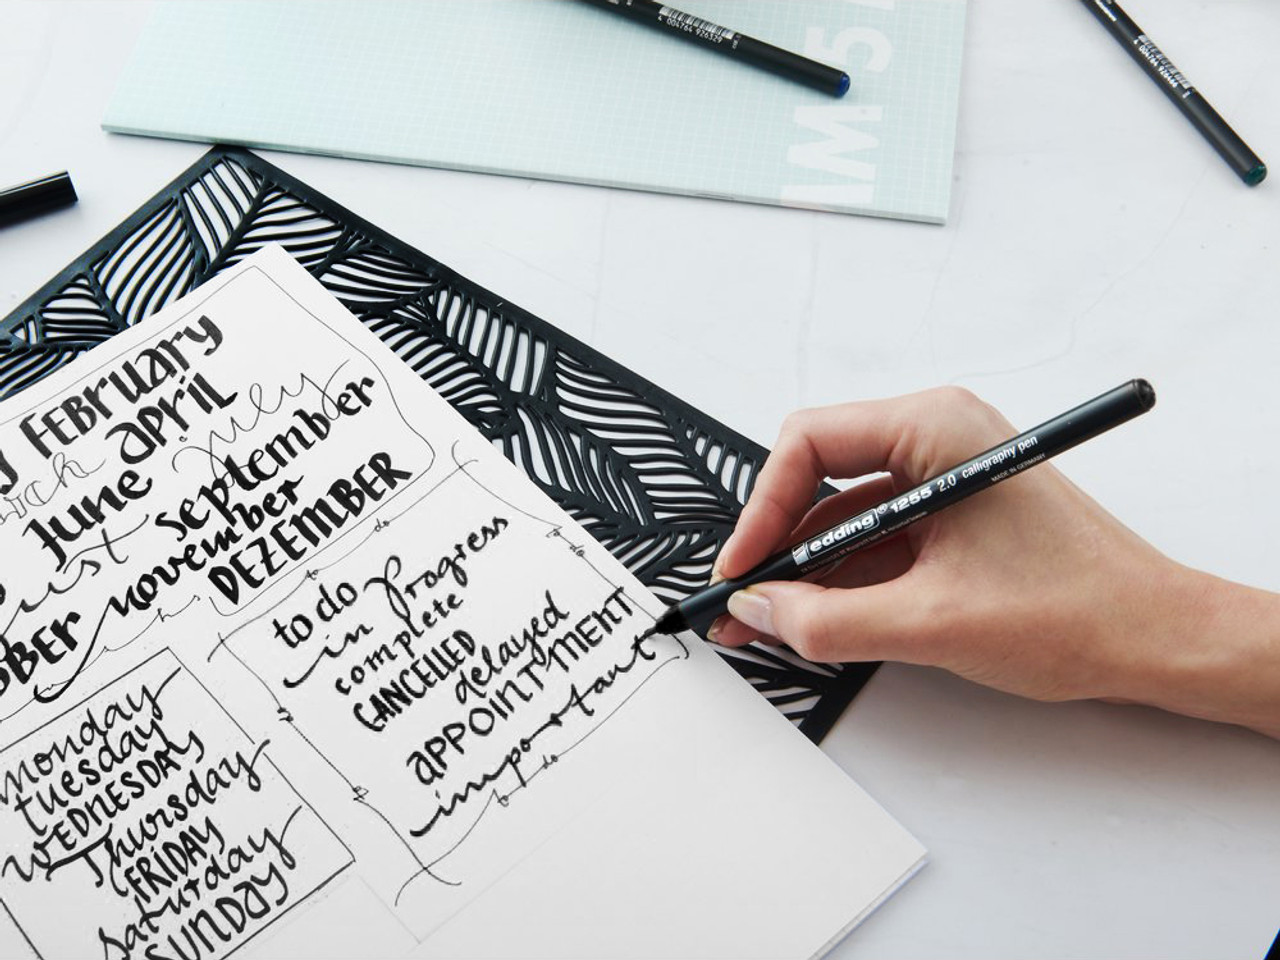 FEBRUARY
APRIL
June
July
september
november
DEZEMBER
to do
in Progress
complete
CANCELLED
delayed
APPOINTMENT
important
monday
tuesday
WEDNESDAY
Thursday
FRIDAY
saturday
SUNDAY
edding® 1255 2.0 calligraphy pen
MADE IN GERMANY
4 004764 926329
M 5